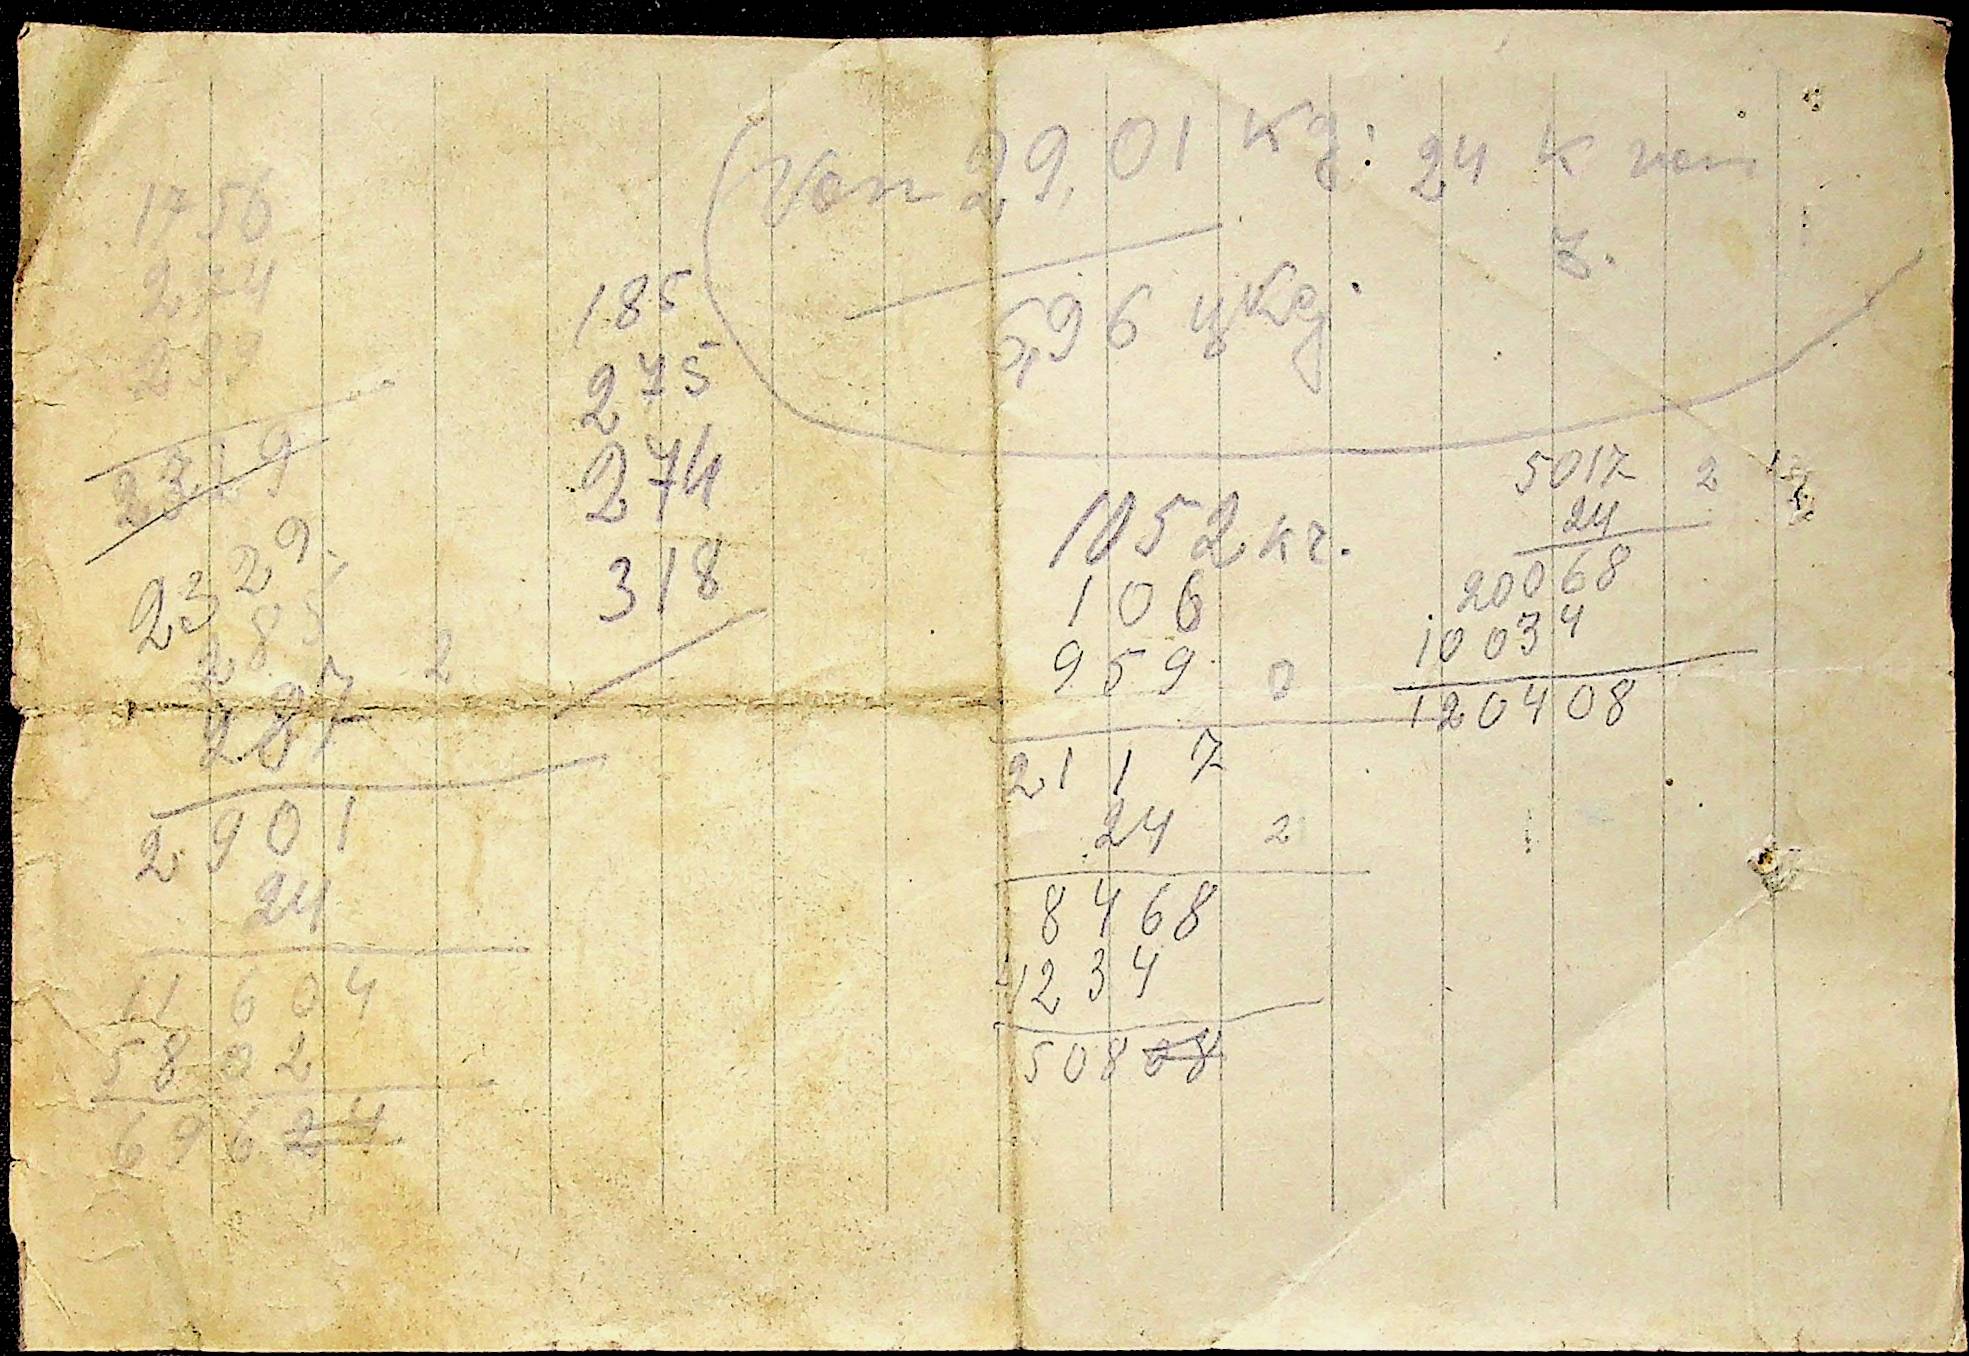 1756
274
299
2319
2329
285
287 2
2901
24
11604
5802
69624
185
275
274
318
Von 29,01 Kg: 24 K von
7.
6,96 Kg
1052 кг.
106
959
2117
24 2
8468
4234
50808
5017 2
24
20068
10034
120408